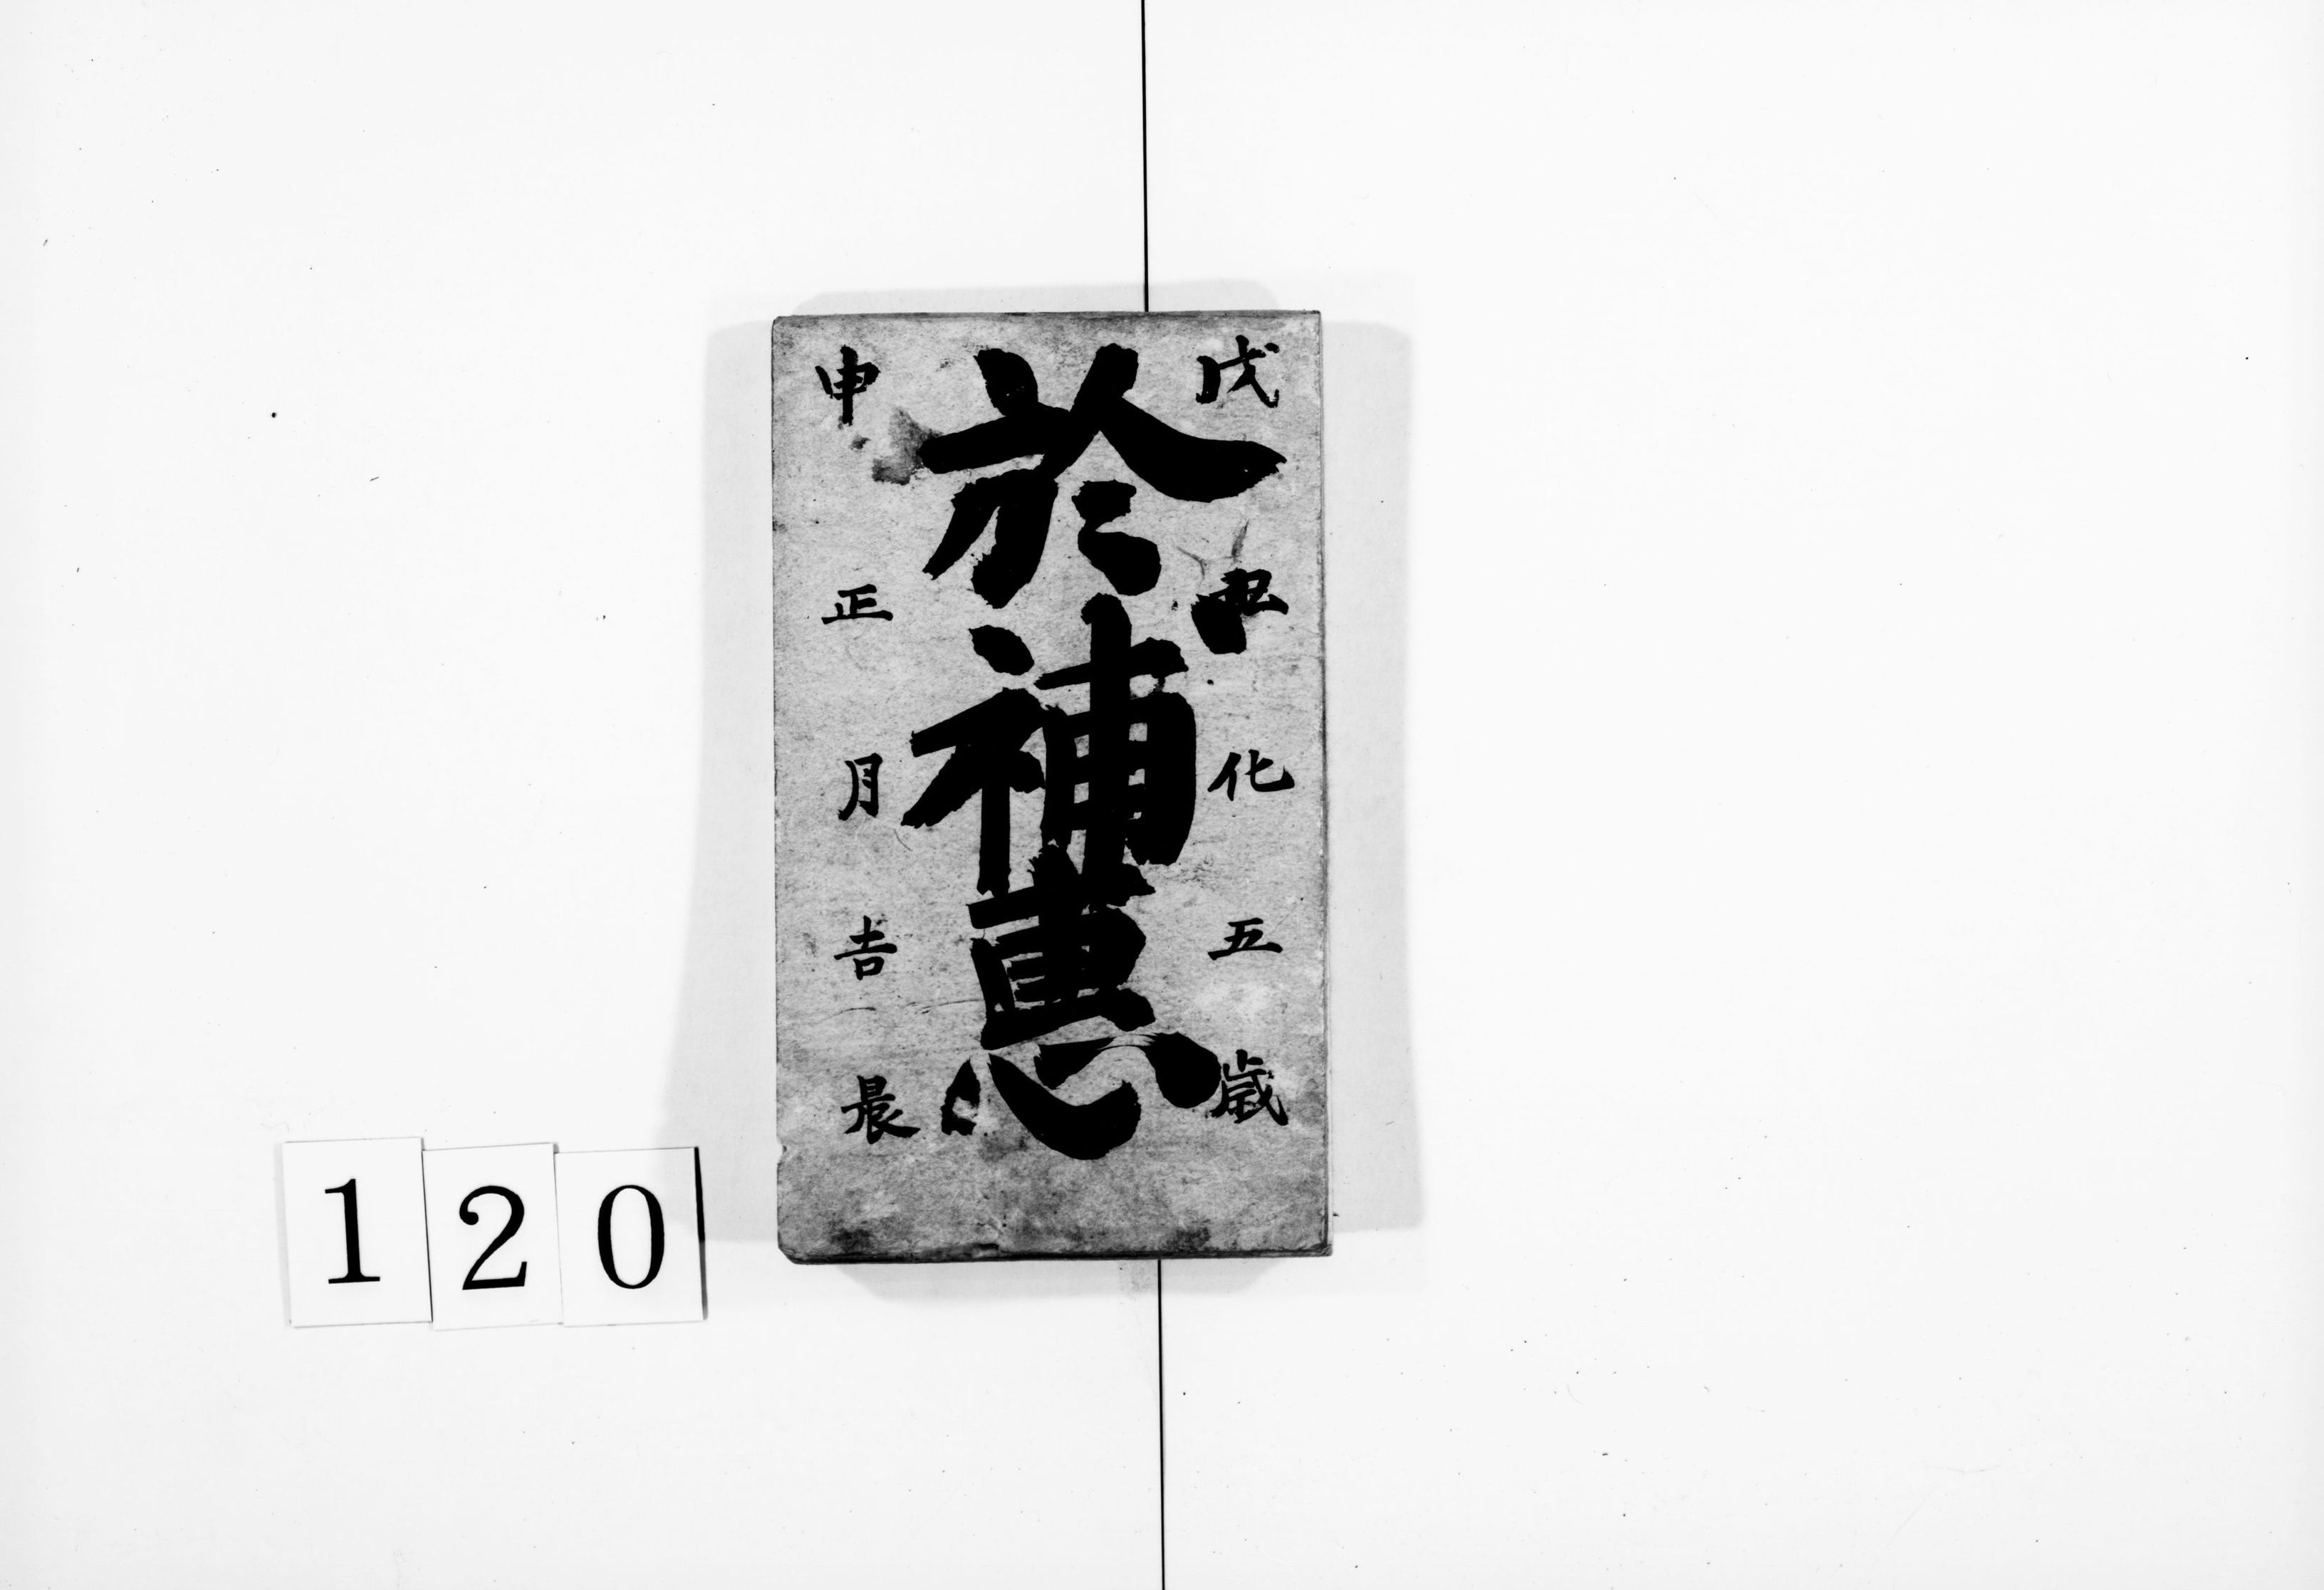 戊弘化五歳
於補恵
申正月吉晨
120